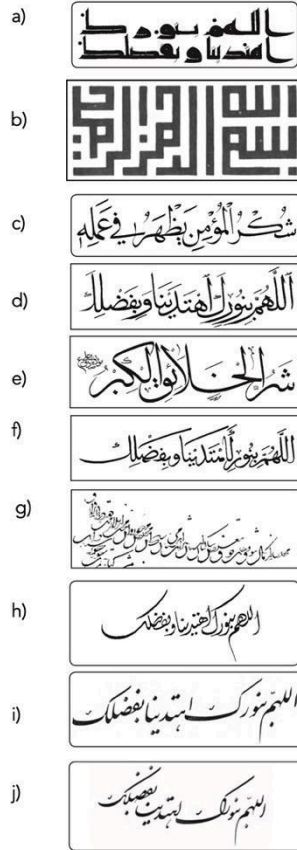 a)
اللهم بنورك
اهتدينا وبفضلك
b)
بسم الله الرحمن الرحيم
c)
شُكْرُ الْمُؤْمِنِ يَظْهَرُ فِي عَمَلِهِ
d)
اَللّٰهُمَّ بِنُورِكَ اَهْتَدَيْنَا وَبِفَضْلِكَ
e)
شَرُّ الْخَلَائِقِ الْكِبْرُ
f)
اللّٰهُمَّ بِنُورِكَ اَهْتَدَيْنَا وَبِفَضْلِكَ
g)
h)
اللهم بنورك اهتدينا وبفضلك
i)
اللهمّ بنورک اهتدینا بفضلک
j)
اللهمّ بنورک اهتدینا بفضلک